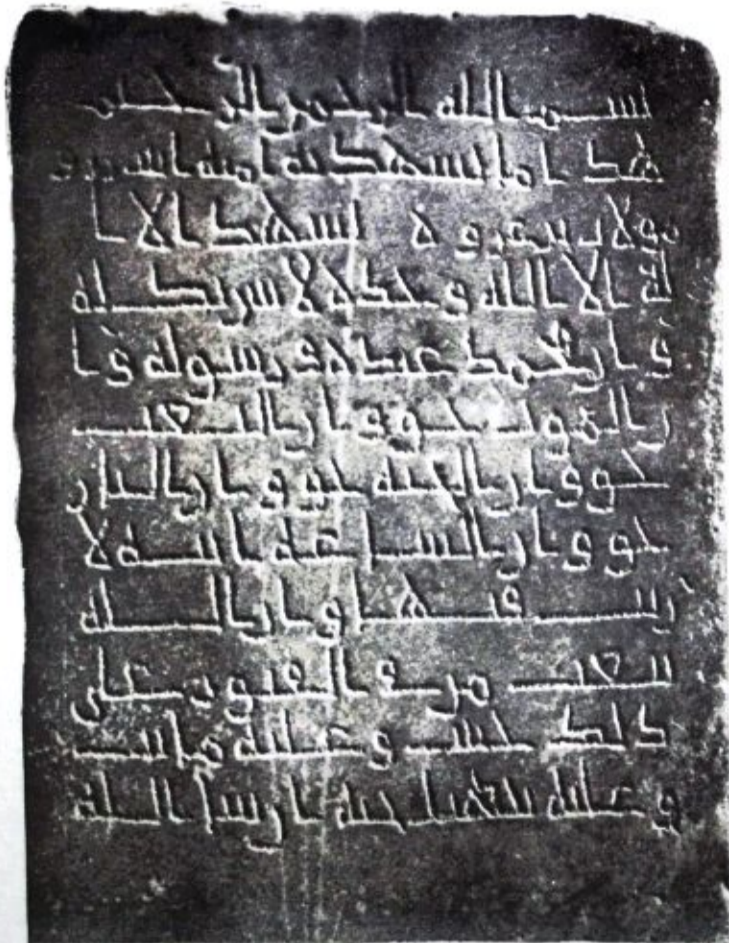 بسم الله الرحمن الرحيم
هذا ما تشهد به امنه
مولات بن عروة تشهد الا ا
له الا الله وحده لا شريك له
وان محمد عبده ورسوله وا
ن الموت حق وان البعث
حق وان الجنه حق وان النار
حق وان الساعه اتيه لا
ريب فيها وان الله
يبعث من في القبور على
ذلك حييت وعليه ماتت
وعليه تبعث حيه ان شا الله